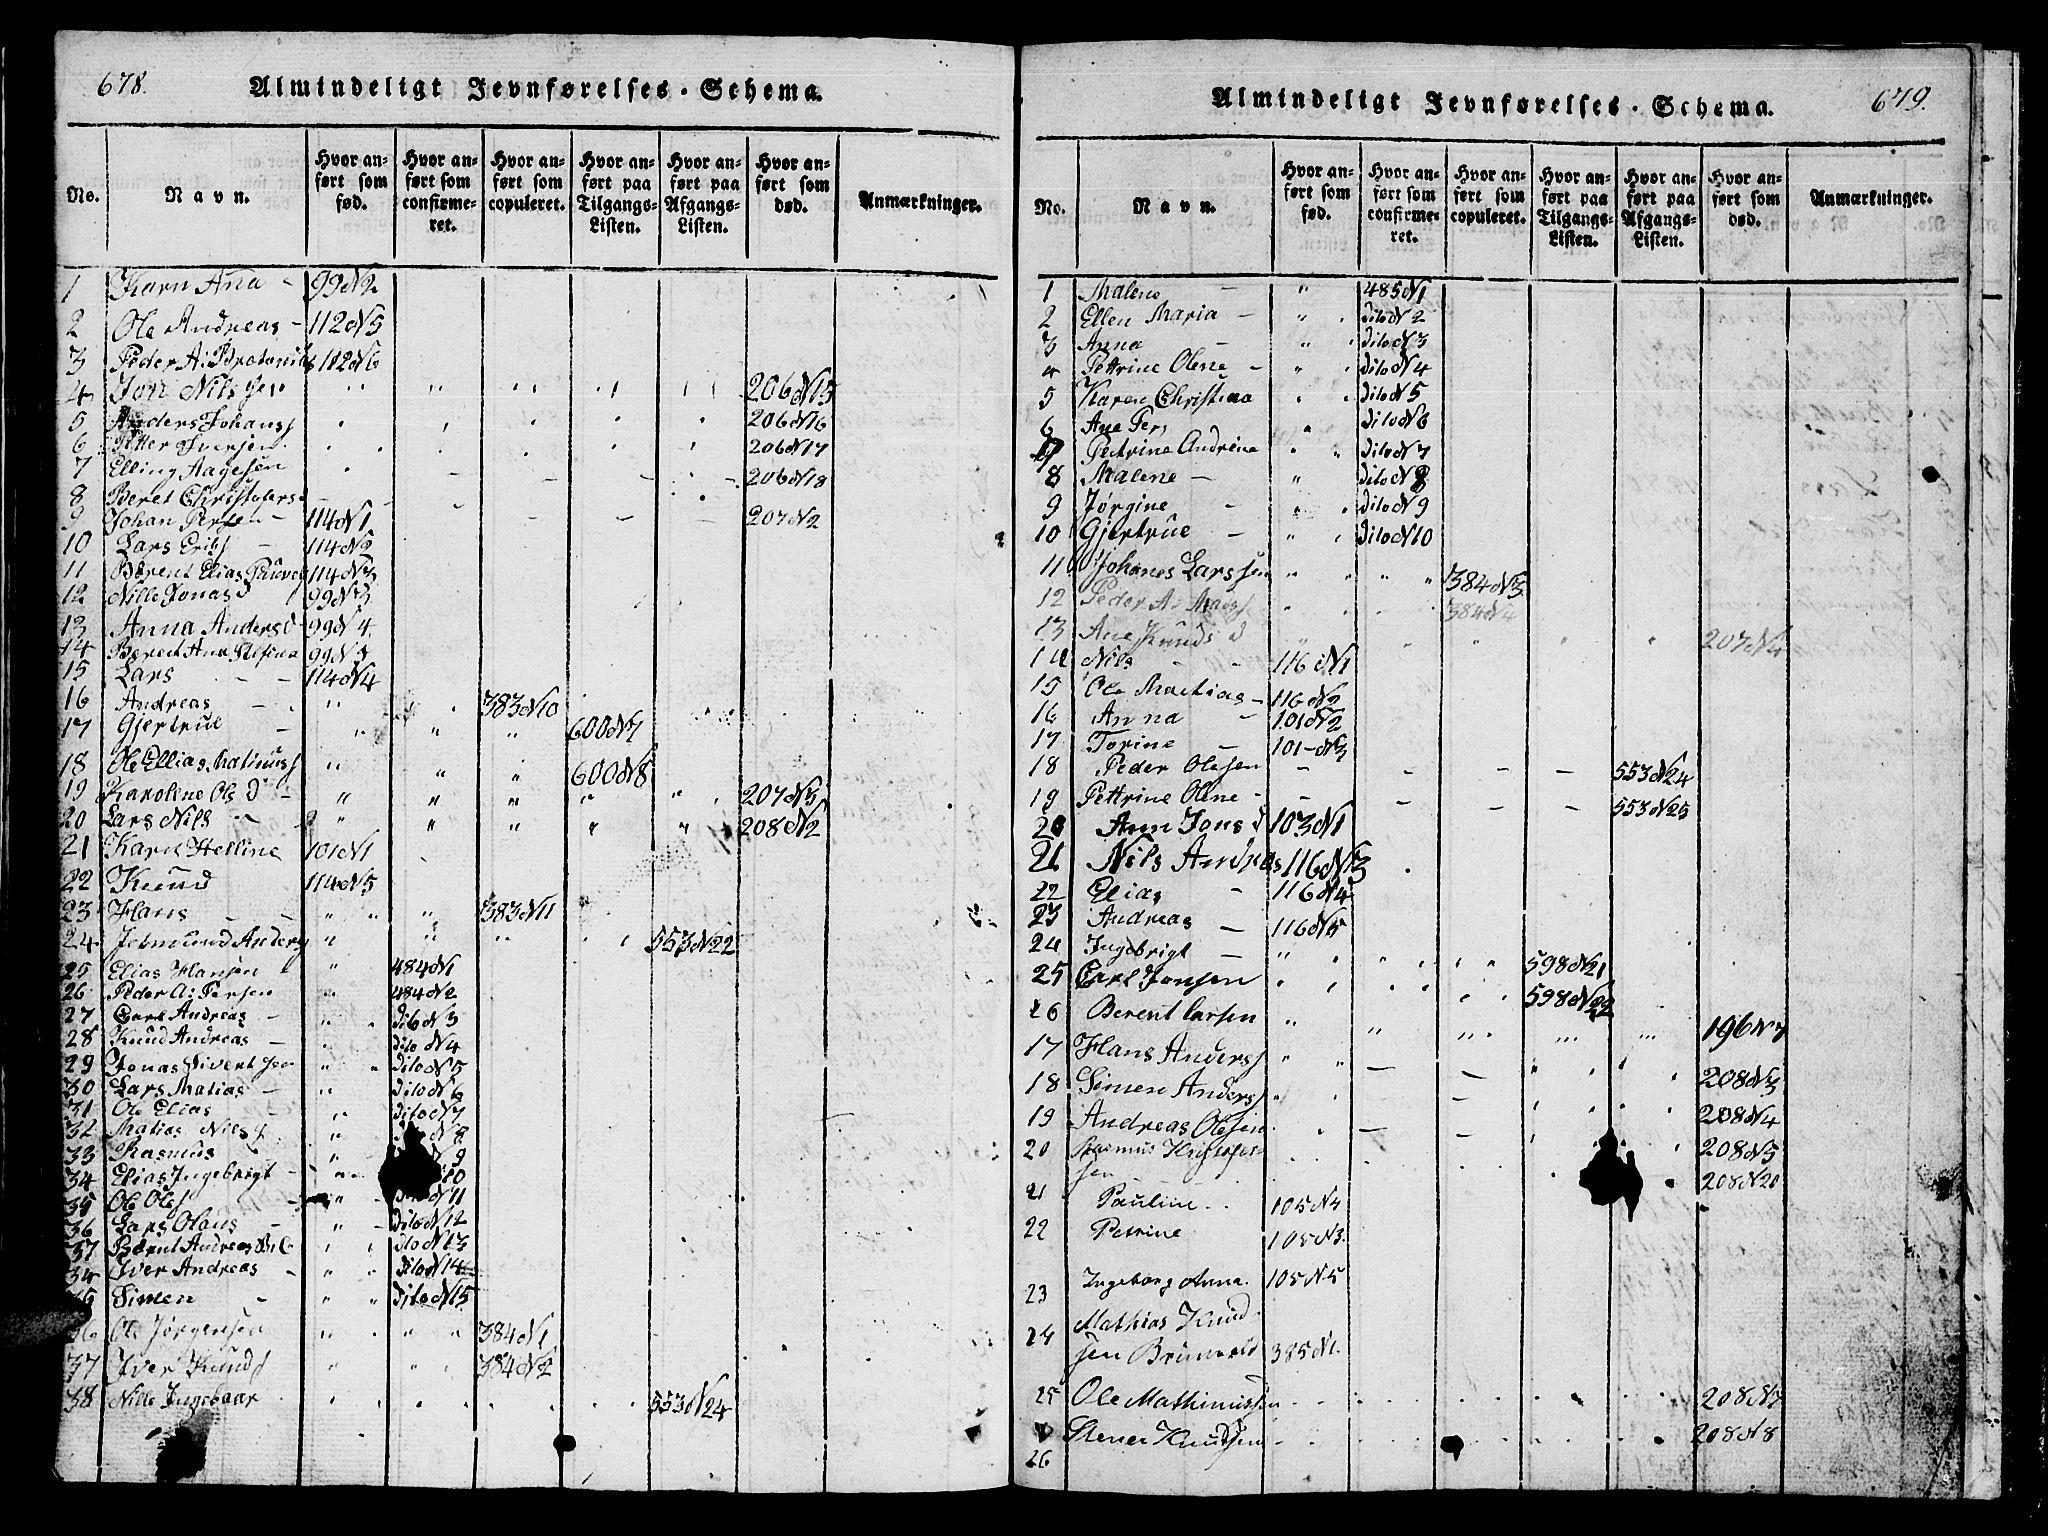 678.
Almindeligt Jevnførelses-Schema.
No. Navn. Hvor anført som fød. Hvor anført som confirmeret. Hvor anført som copuleret. Hvor anført paa Tilgangs-Listen. Hvor anført paa Afgangs-Listen. Hvor anført som død. Anmærkninger.
1 Karn Ana - 99 N 2
2 Ole Andreas - 112 N 5
3 Peder A: 112 N 6
4 Jon Nilssen " " " " " 206 N 15
5 Anders Johans 206 N 16
6 Petter Iversen 206 N 17
7 Elling Aagesen 206 N 18
8 Beret Christofers - 207 N 2
9 Johan Persen - 114 N 1
10 Lars Eriks - 114 N 2
11 Berent Elias 114 N 3
12 Nille Jonas d 99 N 3
13 Anna Anders d 99 N 4
14 Berit Ana Stefina 99 N 5
15 Lars - - 114 N 4
16 Andreas - " 383 N 10
17 Gjertrue - " " " 600 N 7
18 Ole Ellias Matinus " " " 600 N 8
19 Karoline Ols d - " " " " " 207 N 3
20 Lars Nils - " " " " " 208 N 2
21 Karn Helline 101 N 1
22 Knud 114 N 5
23 Hans - - " " 383 N 11
24 Jetmund Anders " " " 553 N 22
25 Elias Hansen " 484 N 1
26 Peder A: Persen " 484 N 2
27 Carl Andreas - " Dito N 3
28 Knud Andreas - Dito N 4
29 Jonas Sivertsen " Dito N 5
30 Lars Matias - Dito N 6
31 Ole Elias - Dito N 7
32 Matias Nils " N 8
33 Rasmus 9
34 Elias Ingebrigt - 10
35 Ole Ols - " N 11
36 Lars Olaus - " Dito N 12
37 Bernt Andreas Dito N 13
34 Iver Andreas - " Dito N 14
35 Simen - " Dito N 15
36 Ole Jørgensen " " " 384 N 1
37 Iver Knuds " " 384 N 2
38 Nille Ingebaar 553 N 24
Almindeligt Jevnførelses-Schema.
679.
No. Navn. Hvor anført som fød. Hvor anført som confirmeret. Hvor anført som copuleret. Hvor anført paa Tilgangs-Listen. Hvor anført paa Afgangs-Listen. Hvor anført som død. Anmærkninger.
1 Malene - " 485 N 1
2 Ellen Maria - " Dito N 2
3 Anna - " Dito N 3
4 Pettrine Olene - " Dito N 4
5 Karen Christina Dito N 5
6 Ane Pers " Dito N 6
7 Petrine Andrine " Dito N 7
8 Malene - " Dito N 8
9 Jørgine - " Dito N 9
10 Gjertrue - " Dito N 10
11 Johanes Larssen " " 384 N 3
12 Peder A: Mads 384 N 4
13 Ane Knuds d 207 N 4
14 Nils - - 116 N 1
15 Ole Mathias - 116 N 2
16 Anna - 101 N 2
17 Torine - 101 - N 3
18 Peder Olesen - - - - 553 N 24
19 Pettrine Olene - - - - - 553 N 25
20 Ann Jons d 103 N 1
21 Nils Andreas 116 N 3
22 Elias - 116 N 4
23 Andreas - 116 N 5
24 Ingebrigt - " " " 598 N 21
25 Carl Jonsen " " " 598 N 22
26 Berent Larsen " " " " " 196 N 7
17 Hans Anders " - - " " 208 N 3
18 Simen Anders " - - 208 N 4
19 Andreas Olesen - - 208 N 5
20 Rasmus Kristofersen 208 N 20
21 Pauline 105 N 4
22 Petrine 105 N 3.
23 Ingeborg Anna. 105 N 5
24 Mathias Knudsen 385 N 1.
25 Ole Mathinussen 208 N 7
26 Knudsen 208 N 8